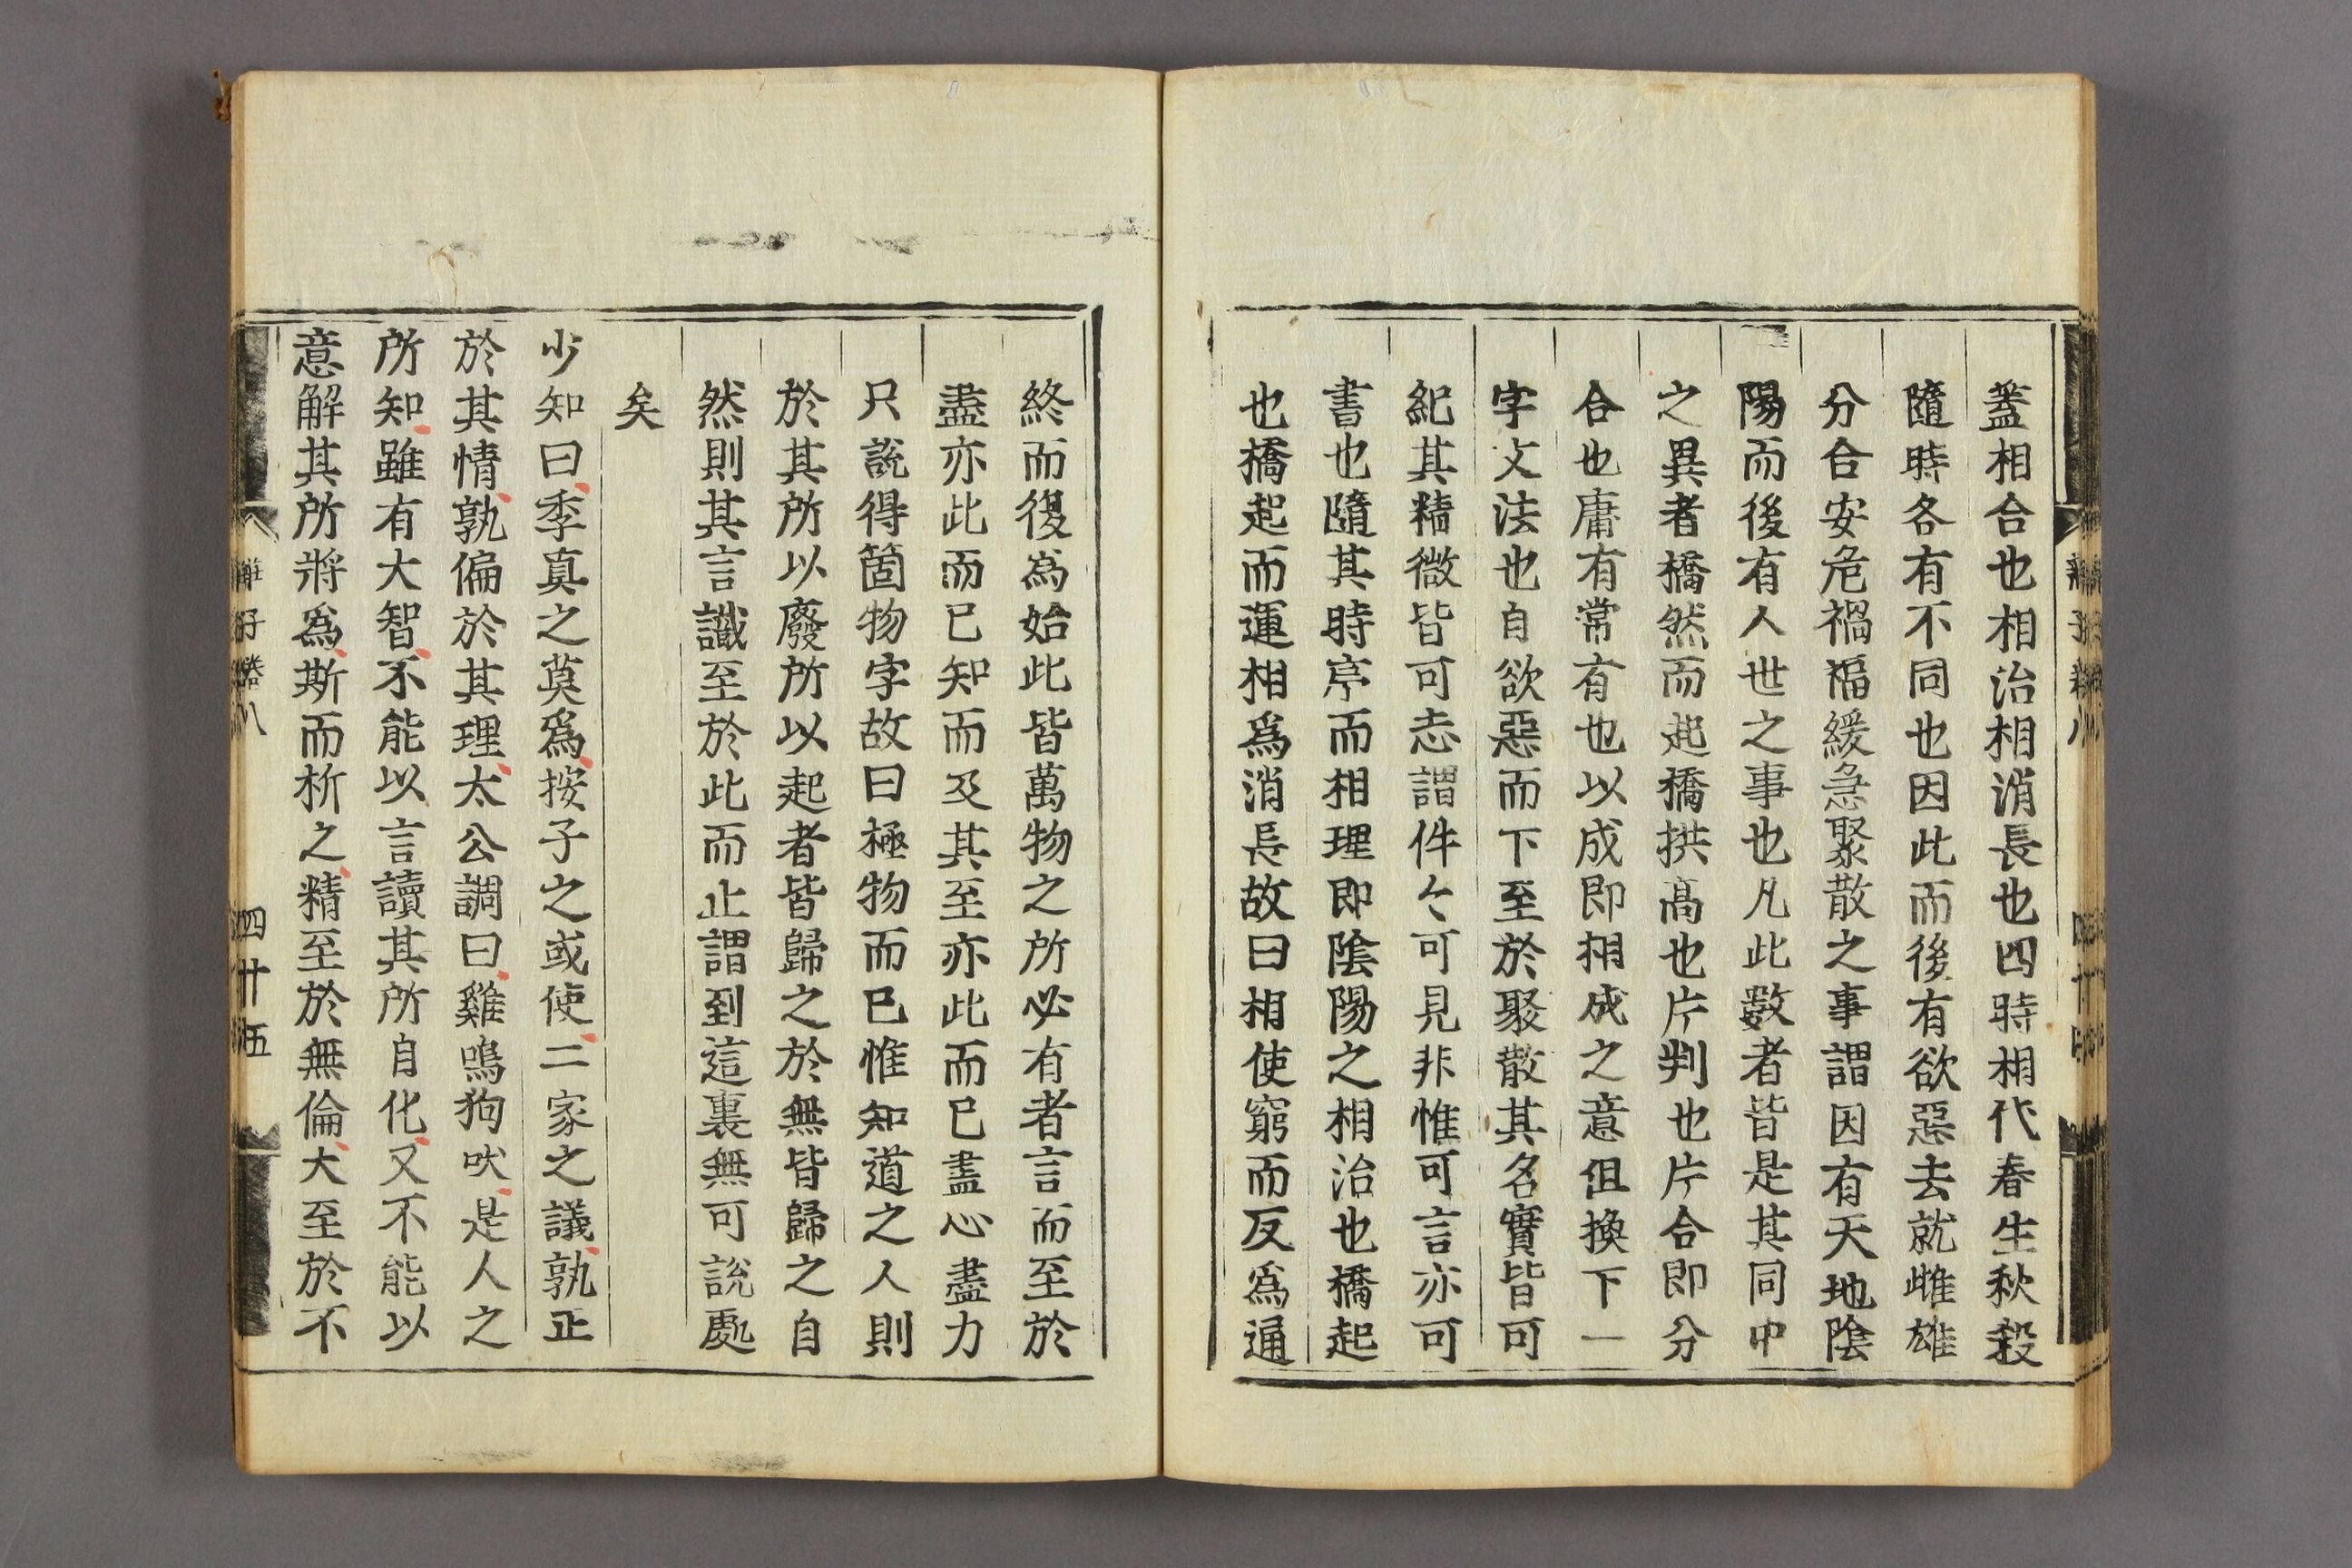 蓋相合也相治相消長也四時相代春生秋殺
隨時各有不同也因此而後有欲惡去就雌雄
分合安危禍福緩急聚散之事謂因有天地陰
陽而後有人世之事也凡此數者皆是其同中
之異者橋然而起橋拱高也片判也片合即分
合也庸有常有也以成即相成之意但換下一
字文法也自欲惡而下至於聚散其名實皆可
紀其精微皆可志謂件々可見非惟可言亦可
書也隨其時序而相理即陰陽之相治也橋起
也橋起而運相為消長故曰相使窮而反為通
終而復為始此皆萬物之所必有者言而至於
盡亦此而已知而及其至亦此而已盡心盡力
只說得箇物字故曰極物而已惟知道之人則
於其所以廢所以起者皆歸之於無皆歸之自
然則其言議至於此而止謂到這裏無可說處
矣
少知曰季真之莫為接子之或使二家之議孰正
於其情孰偏於其理太公調曰雞鳴狗吠是人之
所知雖有大智不能以言讀其所自化又不能以
意解其所將為斯而析之精至於無倫大至於不
莊子卷八
四十五